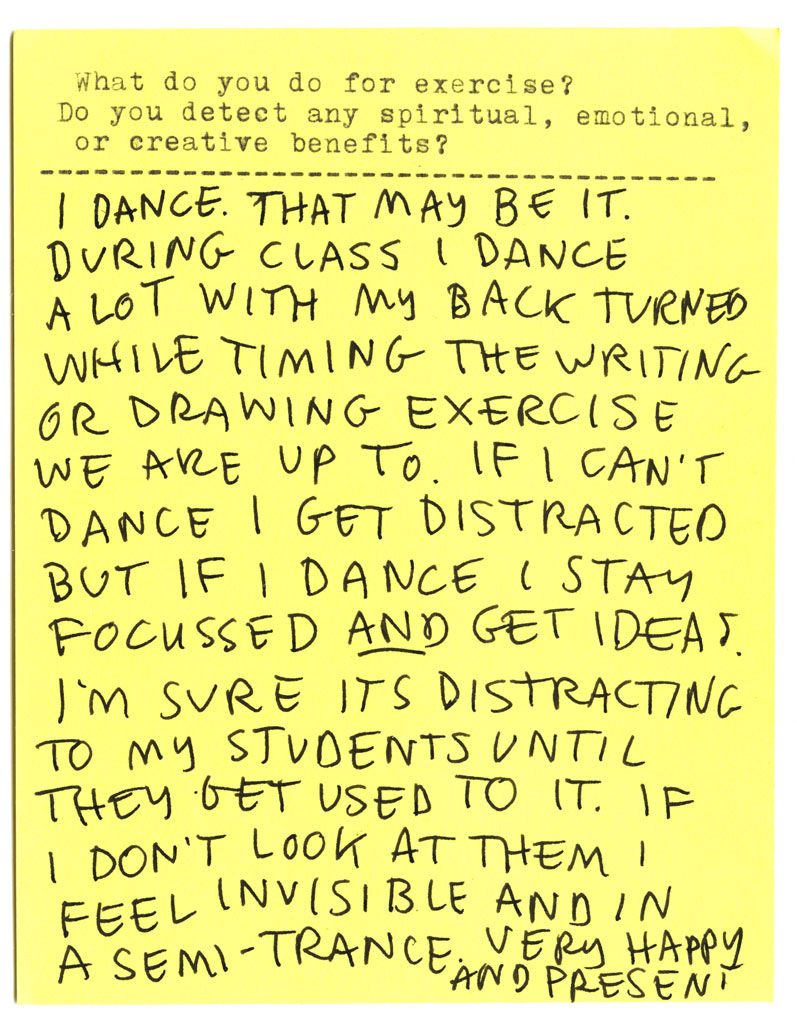 What do you do for exercise?
Do you detect any spiritual, emotional,
or creative benefits?
I DANCE. THAT MAY BE IT.
DURING CLASS I DANCE
A LOT WITH MY BACK TURNED
WHILE TIMING THE WRITING
OR DRAWING EXERCISE
WE ARE UP TO. IF I CAN'T
DANCE I GET DISTRACTED
BUT IF I DANCE I STAY
FOCUSSED AND GET IDEAS.
I'M SURE ITS DISTRACTING
TO MY STUDENTS UNTIL
THEY GET USED TO IT. IF
I DON'T LOOK AT THEM I
FEEL INVISIBLE AND IN
A SEMI-TRANCE. VERY HAPPY
AND PRESENT